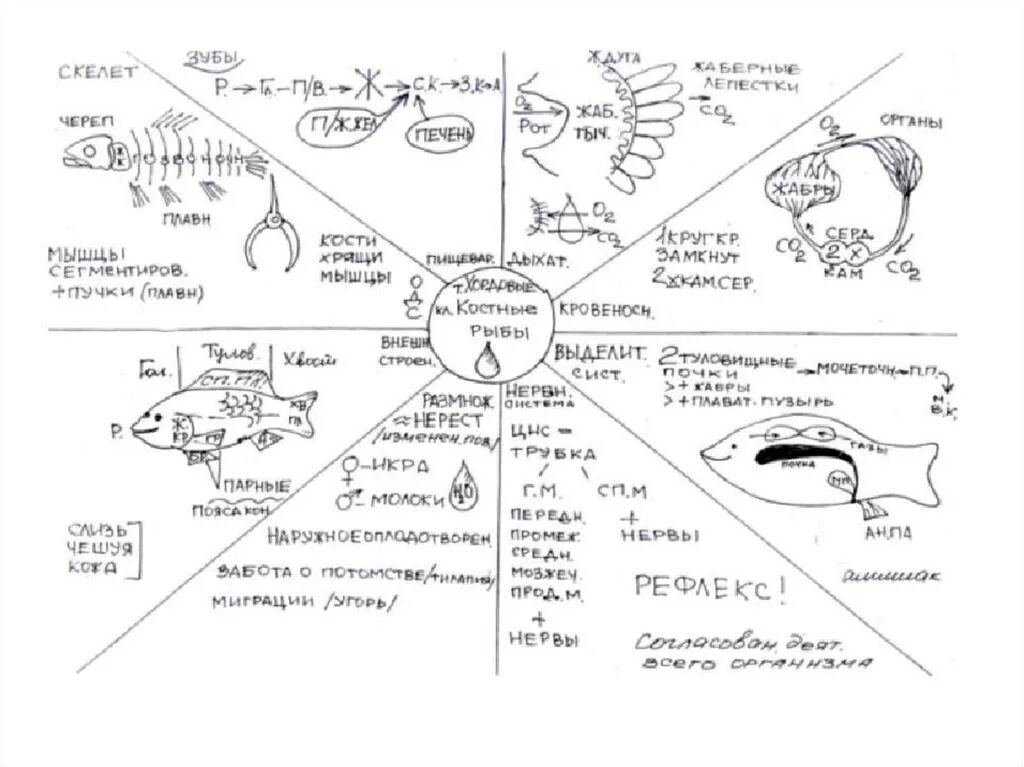 СКЕЛЕТ
ЧЕРЕП
ПОЗВОНОЧН
ПЛАВН
МЫШЦЫ
СЕГМЕНТИРОВ.
+ПУЧКИ (ПЛАВН)
КОСТИ
ХРЯЩИ
МЫШЦЫ
ЗУБЫ
Р. → Гл. – П/В. → Ж → С.К. → З.К → А
П/Ж.ЖЕЛ
ПЕЧЕНЬ
ПИЩЕВАР.
Ж ДУГА
ЖАБЕРНЫЕ
ЛЕПЕСТКИ
O₂
РОТ
ЖАБ.
ТЫЧ.
CO₂
O₂
CO₂
ДЫХАТ.
O₂
ОРГАНЫ
ЖАБРЫ
CO₂
СЕРД
2 Х
КАМ
CO₂
1 КРУГ КР.
ЗАМКНУТ
2ХКАМ.СЕР.
КРОВЕНОСН.
т. ХОРДОВЫЕ
кл. КОСТНЫЕ
РЫБЫ
ВНЕШН
СТРОЕН.
Гол.
Тулов.
Хвост
СП. ПЛ
Р.
Ж.
КР.
ГР
БР
А
ХВ
ПЛ
ПАРНЫЕ
ПОЯСА КОН.
СЛИЗЬ
ЧЕШУЯ
КОЖА
РАЗМНОЖ.
≈ НЕРЕСТ
/ИЗМЕНЕН. ПОВ/
♀-ИКРА
♂-МОЛОКИ
H₂O
НАРУЖНОЕ ОПЛОДОТВОРЕН.
ЗАБОТА О ПОТОМСТВЕ/ТИЛАПИЯ/
МИГРАЦИИ /УГОРЬ/
НЕРВН.
СИСТЕМА
ЦНС =
ТРУБКА
Г.М. СП.М
ПЕРЕДН.
ПРОМЕЖ.
СРЕДН.
МОЗЖЕЧ.
ПРОД.М.
+
НЕРВЫ
+
НЕРВЫ
РЕФЛЕКС!
СОГЛАСОВАН. ДЕЯТ.
ВСЕГО ОРГАНИЗМА
ВЫДЕЛИТ.
СИСТ.
2 ТУЛОВИЩНЫЕ
ПОЧКИ → МОЧЕТОЧН → П.П.
> + ЖАБРЫ
> + ПЛАВАТ. ПУЗЫРЬ
М.
В.К.
ПОЧКА
ТАЗЫ
МП
АН.ПА
аммиак